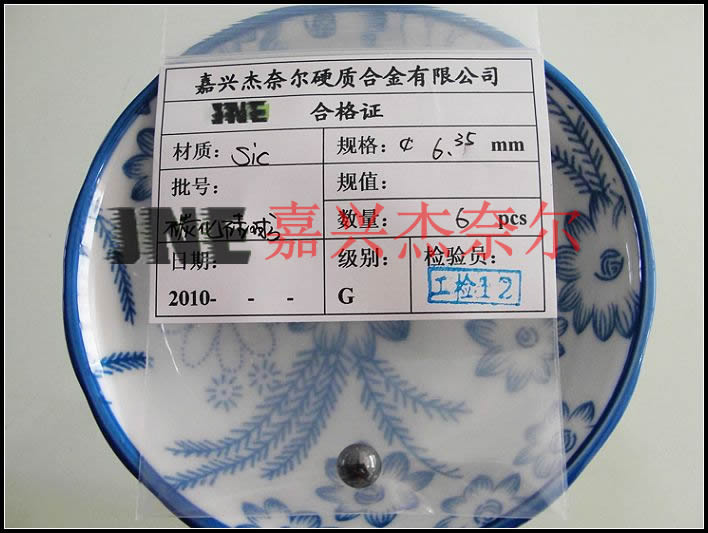 嘉兴杰奈尔硬质合金有限公司
JNE 合格证
材质: Sic
规格: ¢ 6.35 mm
批号:
规值:
碳化硅球
数量: 6 pcs
JNE 嘉兴杰奈尔
日期:
级别:
检验员:
2010- - -
G
工检12